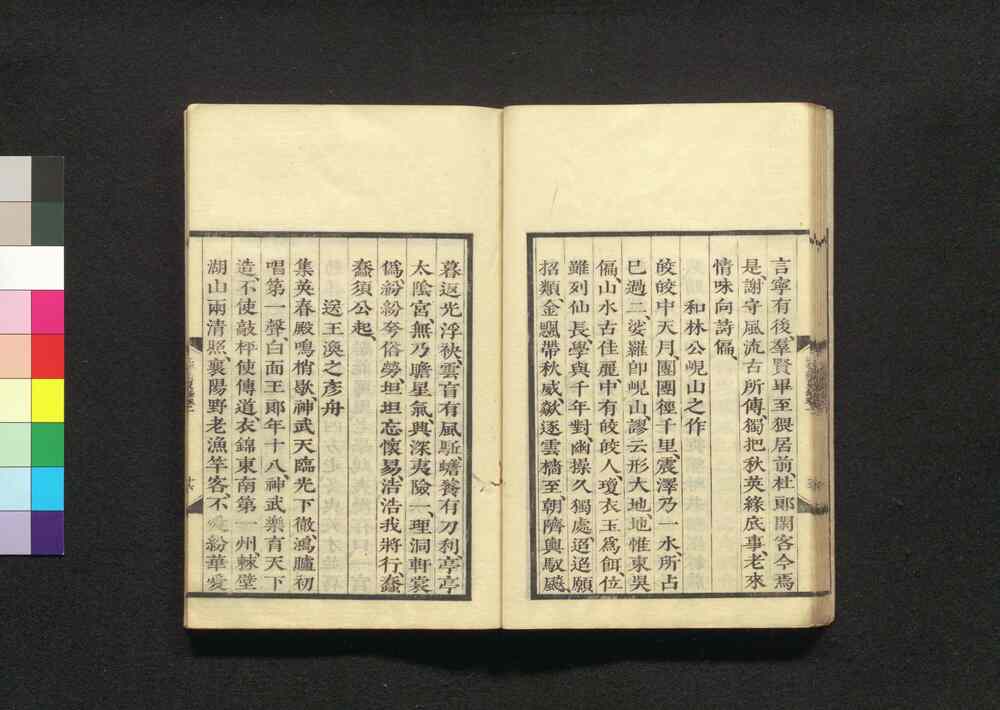 言寧有後、羣賢畢至猥居前、杜郞閑客今焉
是、謝守風流古所傳、獨把秋英緣底事、老來
情味向詩偏、
和林公峴山之作
皎皎中天月、團團徑千里、震澤乃一水、所占
已過二、娑羅卽峴山、謬云形大地、地惟東吳
偏、山水古佳麗、中有皎皎人、瓊衣玉爲餌、位
雖列仙長、學與千年對、幽操久獨處、迢迢願
招類、金飆帶秋威、欻逐雲檣至、朝隮輿馭飈、
暮返光浮袂、雲盲有風駈、蟾餮有刀利、亭亭
太陰宮、無乃瞻星氣、興深夷險一、理洞軒裳
僞、紛紛夸俗勞、坦坦忘懷易、浩浩我將行、蠢
蠢須公起、
送王渙之彥舟
集英春殿鳴梢歇、神武天臨光下徹、鴻臚初
唱第一聲、白面王郞年十八、神武樂育天下
造、不使敲枰使傳道、衣錦東南第一州、棘壁
湖山兩清照、襄陽野老漁竿客、不愛紛華愛